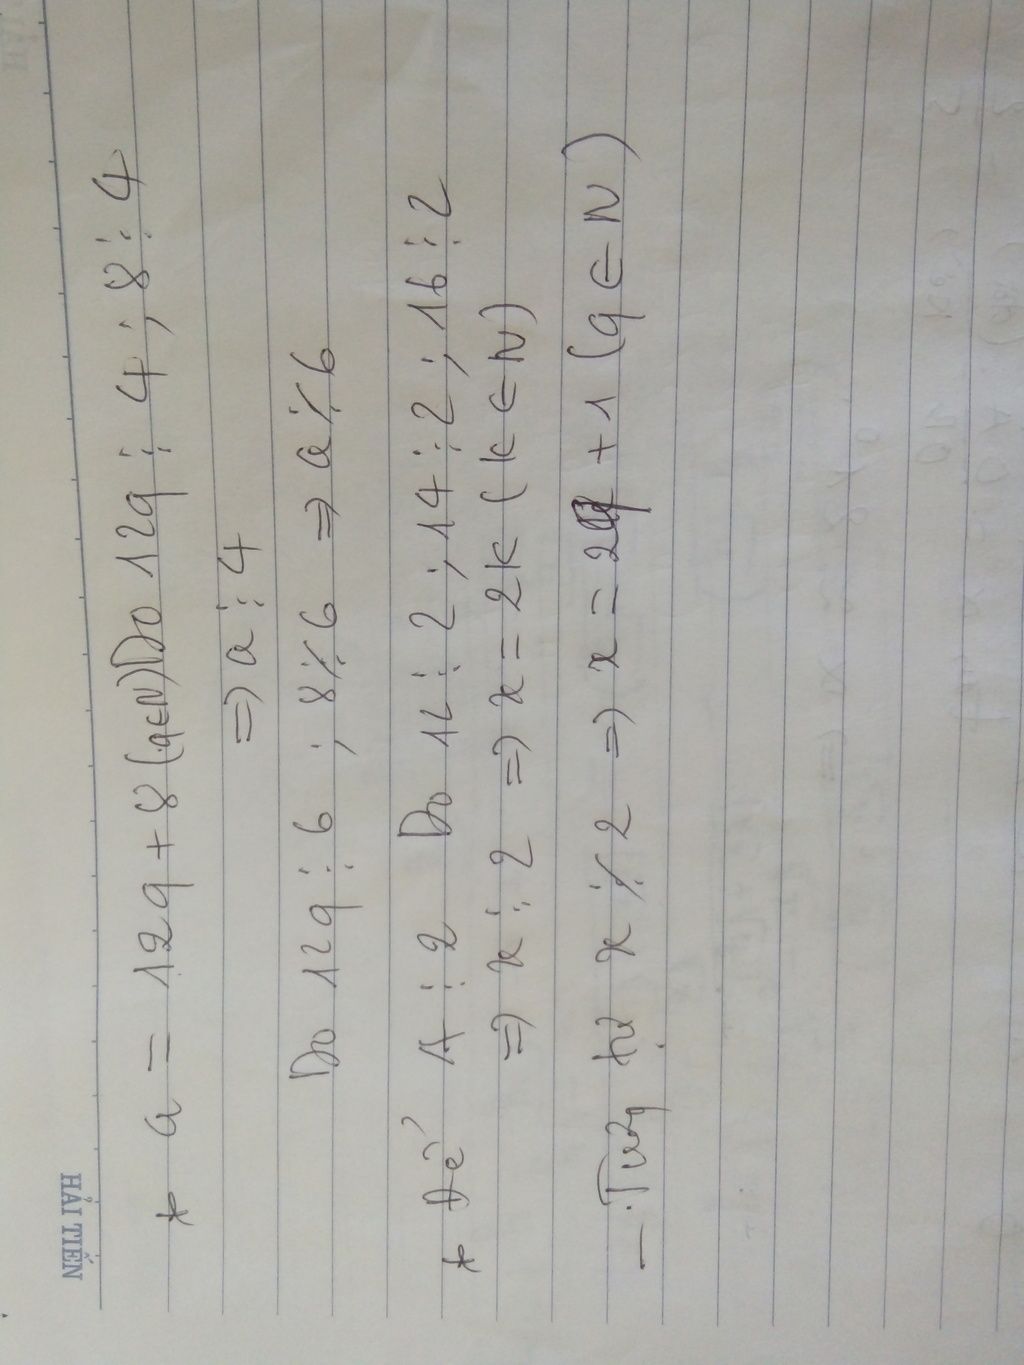 HẢI TIẾN
* a = 12q + 8 (q∈N) Do 12q ⋮ 4 ; 8 ⋮ 4
=> a ⋮ 4
Do 12q ⋮ 6 ; 8 ⋮̸ 6 => a ⋮̸ 6
* Để A ⋮ 2 Do 12 ⋮ 2 ; 14 ⋮ 2 ; 16 ⋮ 2
=> x ⋮ 2 => x = 2k ( k ∈ N )
– Tương tự x ⋮̸ 2 => x = 2q + 1 ( q ∈ N )